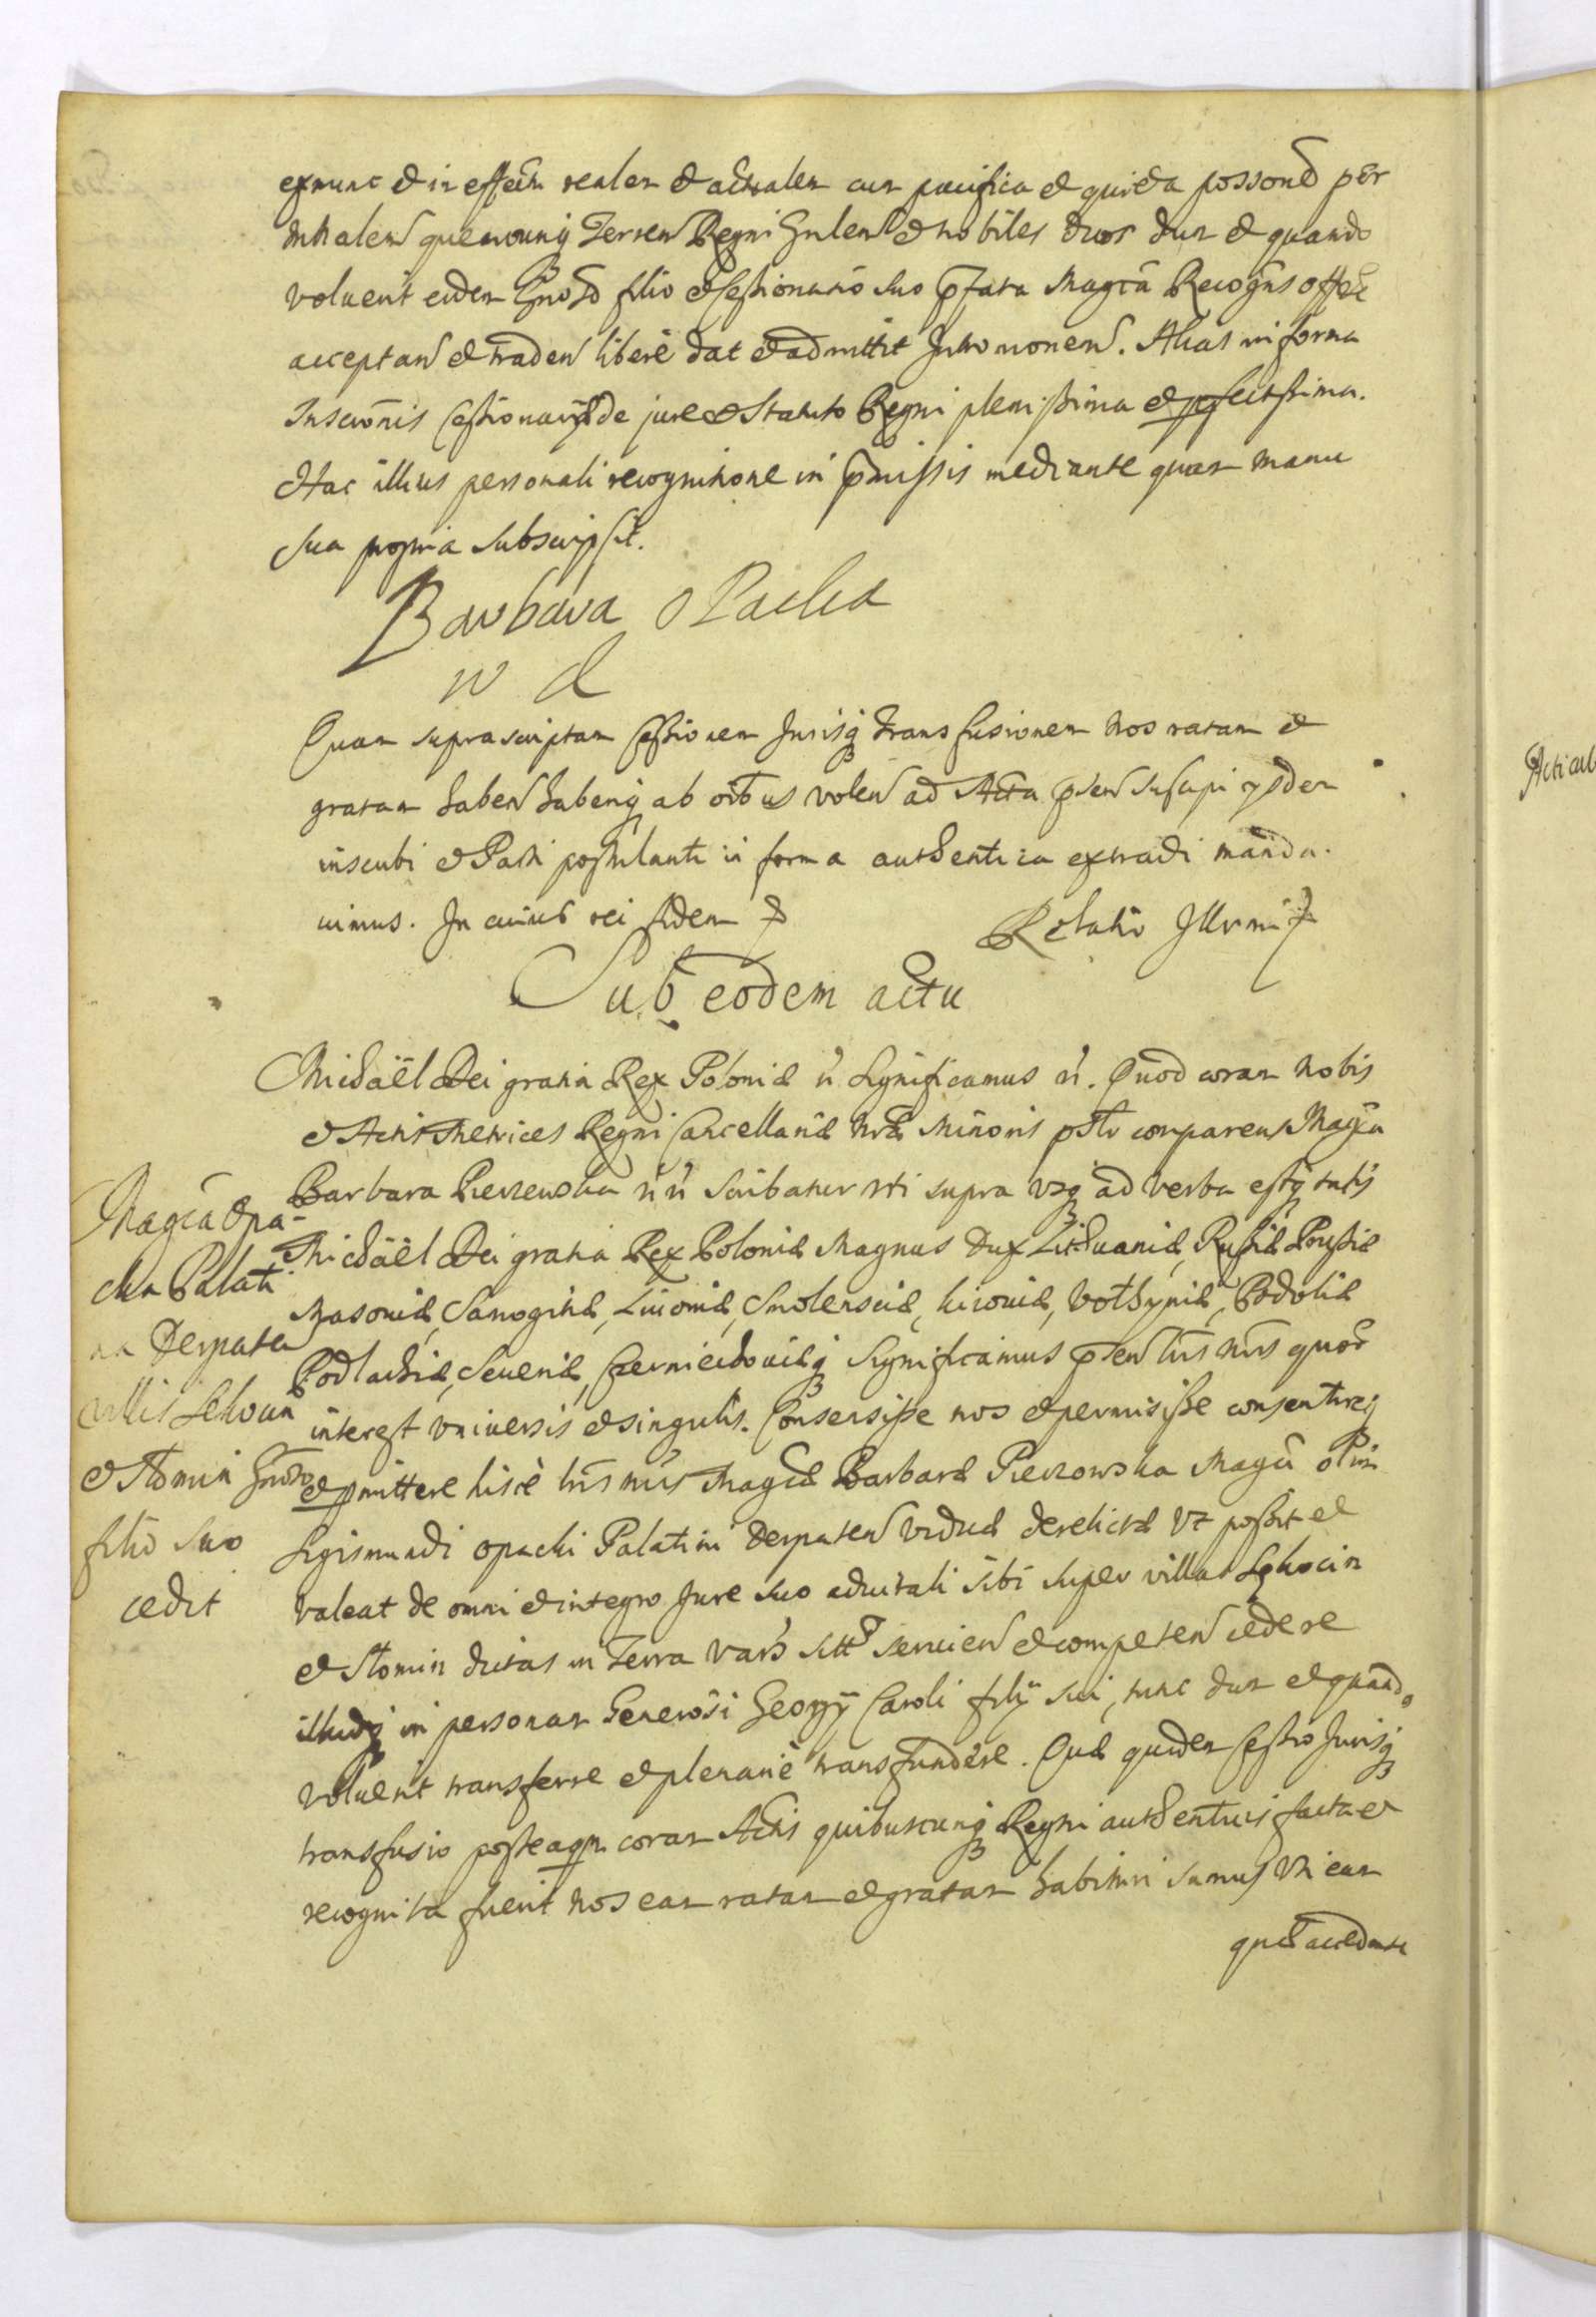 exnunc et in effectu realem et actualem cum pacifica et quieta possone per
Mnlalem quemcunq Terren Regni Gnlem et nobiles duos dum et quando
voluerit eidem Gnoso filio et Cessionario suo pfata Magca Recogns offert
acceptan et traden libere dat et admittit Intromonem. Alias in forma
Inscronis Cessionariae de jure et Statuto Regni plenissima et pfectissima.
Hac illius personali recognitione in pmissis mediante quam manu
sua propria subscripsit.
Barbara Opacka
w d
Quam suprascriptam Cessionem Jurisq transfusionem Nos ratam et
gratam haben haberiq ab oibus volen ad Acta psen suscipi ysdem
inscribi et Parti postulanti in forma authentica extradi manda-
uimus. In cuius rei fidem
Relatio Illrmi
Sub eodem actu
Michaël Dei gratia Rex Poloniae Significamus. Quod coram Nobis
et Actis Metrices Regni Cancellariae nrae Minoris psolr comparens Magca
Barbara Pieczowska Scribatur uti supra usq ad verba estq talis
Michaël Dei gratia Rex Poloniae Magnus Dux Lithuaniae, Russiae Prussiae
Masoviae, Samogitiae, Liuoniae, Smolensciae, kiiouiae, Volhyniae, Podoliae
Podlachiae, Seueriae, Czerniechouiaeq Significamus psen lris nris quor
interest vniuersis et singulis. Consensisse nos et permisisse consentireq
et pmittere hisce lris nris Magcae Barbarae Pieczowska Magci olim
Sigismundi Opacki Palatini Derpaten viduae derelictae Vt possit et
valeat de omni et integro Jure suo aduitali sibi super villas Sękocin
et Słomin dictas in Terra Vars sitt seruien et competen cedere
illudq in personam Generosi Georgij Caroli filij sui, tunc dum et quando
voluerit transferre et plenarie transfundere. Quae quidem Cessio Jurisq
transfusio posteaqm coram Actis quibuscunq Regni authenticis facta et
recognita fuerit Nos eam ratam et gratam habituri sumus Vti eam
quae accedente
Magca Opa-
cka Palati
na Derpaten
villis Sekocin
et Słomin Gnoso
filio suo
cedit
Acticatio